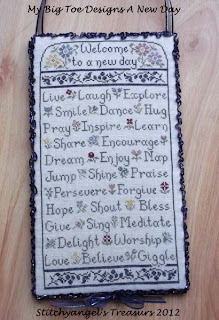 My Big Toe Designs A New Day
Welcome
to a new day
Live Laugh Explore
Smile Dance Hug
Pray Inspire Learn
Share Encourage
Dream Enjoy Nap
Jump Shine Praise
Persevere Forgive
Hope Shout Bless
Give Sing Meditate
Delight Worship
Love Believe Giggle
Stitchyangel's Treasurs 2012